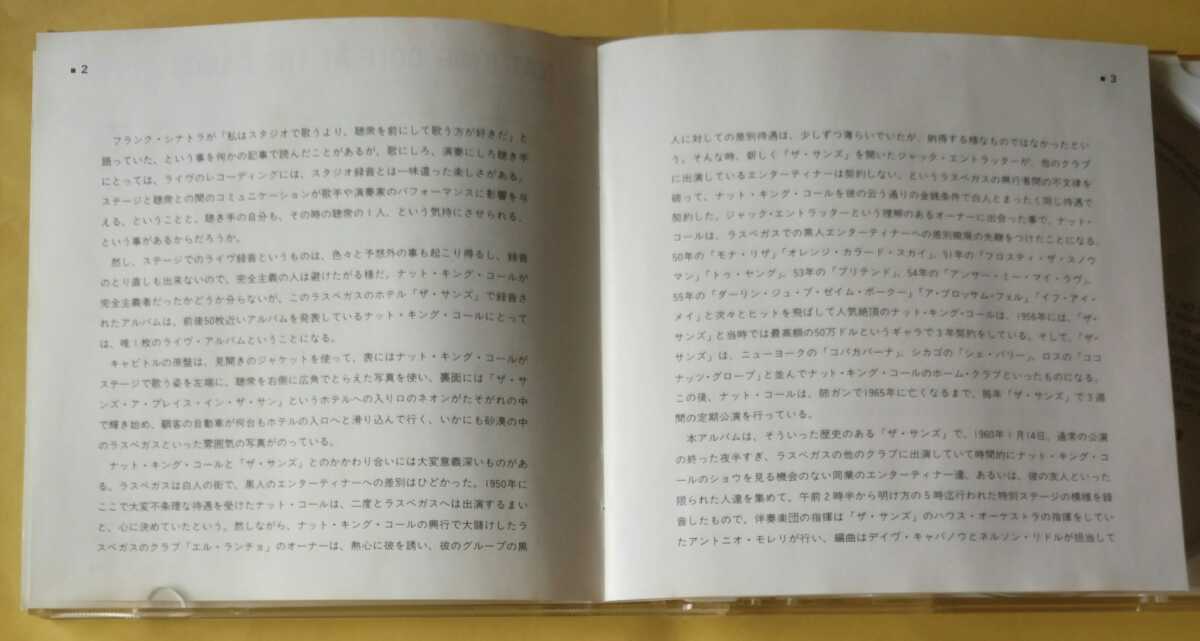 ■ 2
フランク・シナトラが「私はスタジオで歌うより、聴衆を前にして歌う方が好きだ」と
語っていた、という事を何かの記事で読んだことがあるが、歌にしろ、演奏にしろ聴き手
にとっては、ライヴのレコーディングには、スタジオ録音とは一味違った楽しさがある。
ステージと聴衆との間のコミュニケーションが歌手や演奏家のパフォーマンスに影響を与
える、ということと、聴き手の自分も、その時の聴衆の1人、という気持にさせられる、
という事があるからだろうか。
然し、ステージでのライヴ録音というものは、色々と予想外の事も起こり得るし、録音
のとり直しも出来ないので、完全主義の人は避けたがる様だ。ナット・キング・コールが
完全主義者だったかどうか分らないが、このラスベガスのホテル「ザ・サンズ」で録音さ
れたアルバムは、前後50枚近いアルバムを発表しているナット・キング・コールにとって
は、唯1枚のライヴ・アルバムということになる。
キャピトルの原盤は、見開きのジャケットを使って、表にはナット・キング・コールが
ステージで歌う姿を左端に、聴衆を右側に広角でとらえた写真を使い、裏面には「ザ・サ
ンズ・ア・プレイス・イン・ザ・サン」というホテルへの入り口のネオンがたそがれの中
で輝き始め、顧客の自動車が何台もホテルの入口へと滑り込んで行く、いかにも砂漠の中
のラスベガスといった雰囲気の写真がのっている。
ナット・キング・コールと「ザ・サンズ」とのかかわり合いには大変意義深いものがあ
る。ラスベガスは白人の街で、黒人のエンターティナーへの差別はひどかった。1950年に
ここで大変不条理な待遇を受けたナット・コールは、二度とラスベガスへは出演するまい
と、心に決めていたという。然しながら、ナット・キング・コールの興行で大儲けしたラ
スベガスのクラブ「エル・ランチョ」のオーナーは、熱心に彼を誘い、彼のグループの黒
■ 3
人に対しての差別待遇は、少しずつ薄らいでいたが、納得する様なものではなかったとい
う。そんな時、新しく「ザ・サンズ」を開いたジャック・エントラッターが、他のクラブ
に出演しているエンターティナーは契約しない、というラスベガスの興行者間の不文律を
破って、ナット・キング・コールを彼の云う通りの金銭条件で白人とまったく同じ待遇で
契約した。ジャック・エントラッターという理解のあるオーナーに出会った事で、ナット・
コールは、ラスベガスでの黒人エンターティナーへの差別撤廃の先鞭をつけたことになる。
50年の「モナ・リザ」「オレンジ・カラード・スカイ」、51年の「フロスティ・ザ・スノウ
マン」「トゥ・ヤング」、53年の「プリテンド」、54年の「アンサー・ミー・マイ・ラヴ」、
55年の「ダーリン・ジュ・ブ・ゼイム・ボークー」「ア・ブロッサム・フェル」「イフ・アイ・
メイ」と次々とヒットを飛ばして人気絶頂のナット・キング・コールは、1956年には、「ザ・
サンズ」と当時では最高額の50万ドルというギャラで3年契約をしている。そして、「ザ・
サンズ」は、ニューヨークの「コパカバーナ」、シカゴの「シェ・パリー」、ロスの「ココ
ナッツ・グローブ」と並んでナット・キング・コールのホーム・クラブといったものになる。
この後、ナット・コールは、肺ガンで1965年に亡くなるまで、毎年「ザ・サンズ」で3週
間の定期公演を行っている。
本アルバムは、そういった歴史のある「ザ・サンズ」で、1960年1月14日、通常の公演
の終った夜半すぎ、ラスベガスの他のクラブに出演していて時間的にナット・キング・コ
ールのショウを見る機会のない同業のエンターティナー達、あるいは、彼の友人といった
限られた人達を集めて、午前2時半から明け方の5時迄行われた特別ステージの模様を録
音したもので、伴奏楽団の指揮は「ザ・サンズ」のハウス・オーケストラの指揮をしてい
たアントニオ・モレリが行い、編曲はデイヴ・キャバノウとネルソン・リドルが担当して